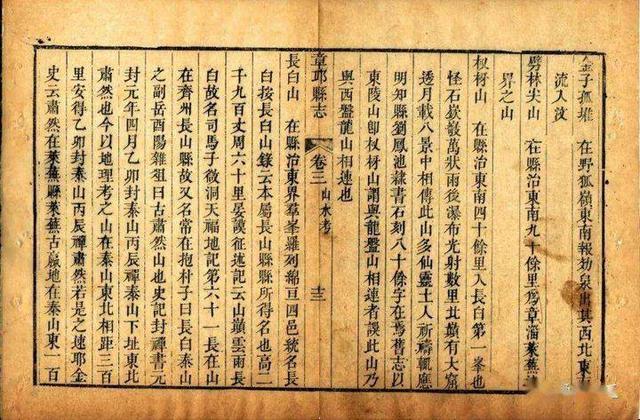 金子孤堆　在野狐嶺東南報効泉出其西北東
流入汶
劈林尖山　在縣治東南九十餘里爲章淄萊蕪
界之山
杈枒山　在縣治東南四十餘里入長白第一峯也
怪石嶔嶔萬狀雨後瀑布光射數里北巔有大窟
透月載八景中相傳此山多仙靈土人祈禱輒應
明知縣劉鳳池隸書石刻八十餘字在焉舊志以
東陵山卽杈枒山謂與龍盤山相連者誤此山乃
與西盤龍山相連也
章邱縣志　卷三　山水考　十三
長白山　在縣治東界羣峯羅列綿亘四邑統名長
白按長白山錄云本屬長山縣縣所得名也高二
千九百丈周六十里晏謨征途記云山巔雲雨長
白故名司馬子微洞天福地記第六十一長在山
在齊州長山縣故又名常在抱朴子曰長白泰山
之副岳酉陽雜俎曰古肅然山也史記封禪書元
封元年四月乙卯封泰山丙辰禪肅然山下址東北
肅然也今以地理考之山在泰山東北相距三百
里安得乙卯封泰山丙辰禪肅然若是之速耶金
史云肅然在萊蕪縣萊蕪古嬴地在泰山東一百